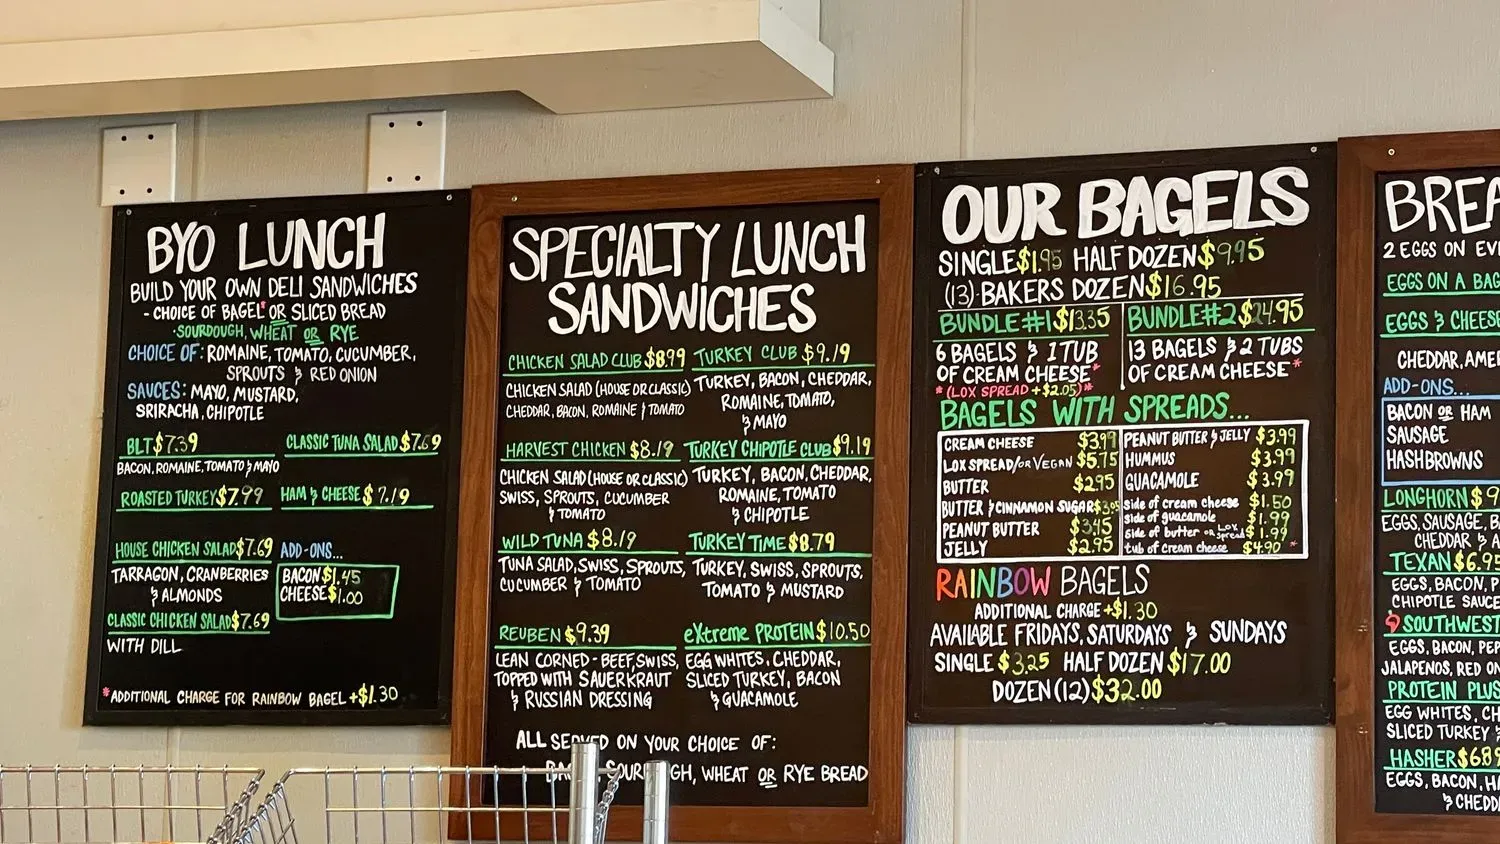 BYO LUNCH
BUILD YOUR OWN DELI SANDWICHES
- CHOICE OF BAGEL* OR SLICED BREAD
·SOURDOUGH, WHEAT OR RYE
CHOICE OF: ROMAINE, TOMATO, CUCUMBER,
SPROUTS & RED ONION
SAUCES: MAYO, MUSTARD,
SRIRACHA, CHIPOTLE
BLT $7.39
BACON, ROMAINE, TOMATO & MAYO
CLASSIC TUNA SALAD $7.69
ROASTED TURKEY $7.99
HAM & CHEESE $7.19
HOUSE CHICKEN SALAD $7.69
TARRAGON, CRANBERRIES
& ALMONDS
ADD-ONS...
BACON $1.45
CHEESE $1.00
CLASSIC CHICKEN SALAD $7.69
WITH DILL
*ADDITIONAL CHARGE FOR RAINBOW BAGEL +$1.30
SPECIALTY LUNCH
SANDWICHES
CHICKEN SALAD CLUB $8.99
CHICKEN SALAD (HOUSE OR CLASSIC)
CHEDDAR, BACON, ROMAINE & TOMATO
TURKEY CLUB $9.19
TURKEY, BACON, CHEDDAR,
ROMAINE, TOMATO,
& MAYO
HARVEST CHICKEN $8.19
CHICKEN SALAD (HOUSE OR CLASSIC)
SWISS, SPROUTS, CUCUMBER
& TOMATO
TURKEY CHIPOTLE CLUB $9.19
TURKEY, BACON, CHEDDAR,
ROMAINE, TOMATO
& CHIPOTLE
WILD TUNA $8.19
TUNA SALAD, SWISS, SPROUTS,
CUCUMBER & TOMATO
TURKEY TIME $8.79
TURKEY, SWISS, SPROUTS,
TOMATO & MUSTARD
REUBEN $9.39
LEAN CORNED-BEEF, SWISS,
TOPPED WITH SAUERKRAUT
& RUSSIAN DRESSING
eXtreme PROTEIN $10.50
EGG WHITES, CHEDDAR,
SLICED TURKEY, BACON
& GUACAMOLE
ALL SERVED ON YOUR CHOICE OF:
WHEAT OR RYE BREAD
OUR BAGELS
SINGLE $1.95 HALF DOZEN $9.95
(13) BAKERS DOZEN $16.95
BUNDLE #1 $13.35
6 BAGELS & 1 TUB
OF CREAM CHEESE*
*(LOX SPREAD +$2.05)*
BUNDLE #2 $24.95
13 BAGELS & 2 TUBS
OF CREAM CHEESE*
BAGELS WITH SPREADS...
CREAM CHEESE $3.99
LOX SPREAD/OR VEGAN $5.75
BUTTER $2.95
BUTTER & CINNAMON SUGAR $3.05
PEANUT BUTTER $3.45
JELLY $2.95
PEANUT BUTTER & JELLY $3.99
HUMMUS $3.99
GUACAMOLE $3.99
side of cream cheese $1.50
side of guacamole $1.99
side of butter OR LOX spread $1.99
tub of cream cheese $4.90 *
RAINBOW BAGELS
ADDITIONAL CHARGE +$1.30
AVAILABLE FRIDAYS, SATURDAYS & SUNDAYS
SINGLE $3.25 HALF DOZEN $17.00
DOZEN (12) $32.00
BREA
2 EGGS ON EV
EGGS ON A BAG
EGGS & CHEESE
CHEDDAR, AME
ADD-ONS...
BACON OR HAM
SAUSAGE
HASHBROWNS
LONGHORN $9
EGGS, SAUSAGE, B
CHEDDAR & A
TEXAN $6.95
EGGS, BACON, P
CHIPOTLE SAUCE
SOUTHWEST
EGGS, BACON, PEP
JALAPENOS, RED ON
PROTEIN PLUS
EGG WHITES, CH
SLICED TURKEY &
HASHER $6.89
EGGS, BACON, HA
& CHEDD